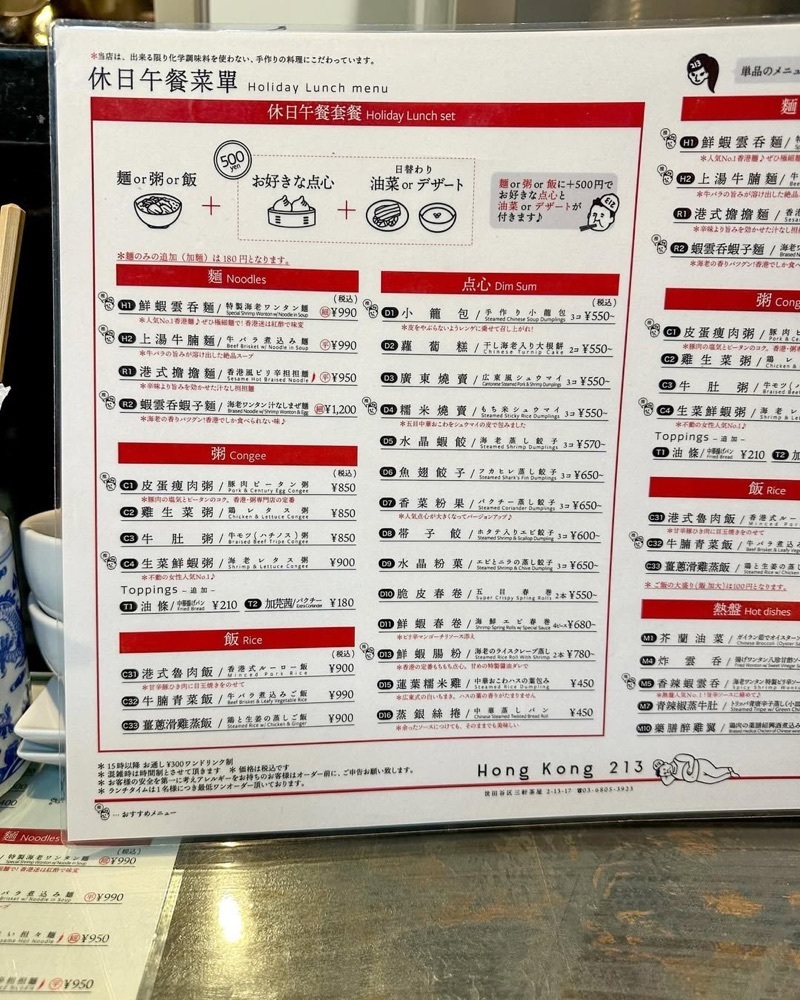 *当店は、出来る限り化学調味料を使わない、手作りの料理にこだわっています。
休日午餐菜單 Holiday Lunch menu
休日午餐套餐 Holiday Lunch set
麺or粥or飯
+
500 yen
お好きな点心
+
日替わり
油菜 or デザート
麺 or 粥 or 飯に+500円で
お好きな点心と
油菜 or デザートが
付きます♪
*麺のみの追加(加麺)は180円となります。
麺 Noodles
(税込)
H1 鮮蝦雲呑麺/特製海老ワンタン麺 ¥990
Special Shrimp Wonton w/Noodle in Soup
*人気No.1香港麺♪ぜひ極細麺で!香港迷は紅酢で味変
H2 上湯牛腩麺/牛バラ煮込み麺 ¥990
Beef Brisket w/ Noodle in Soup
*牛バラの旨みが溶け出した絶品スープ
R1 港式擔擔麺/香港風ピリ辛担担麺 ¥950
Sesame Hot Braised Noodle
*辛味より旨みを効かせた汁なし担担麺
R2 蝦雲呑蝦子麺/海老ワンタン汁なしまぜ麺 ¥1,200
Braised Noodle w/Shrimp Wonton & Egg
*海老の香りバツグン!香港でしか食べられない味♪
粥 Congee
(税込)
C1 皮蛋痩肉粥/豚肉ピータン粥 ¥850
Pork & Century Egg Congee
*豚肉の塩気とピータンのコク。香港・粥専門店の定番
C2 雞生菜粥/鶏レタス粥 ¥850
Chicken & Lettuce Congee
C3 牛肚粥/牛モツ(ハチノス)粥 ¥850
Braised Beef Tripe Congee
C4 生菜鮮蝦粥/海老レタス粥 ¥900
Shrimp & Lettuce Congee
*不動の女性人気No.1♪
Toppings – 追加 –
T1 油條/中華揚げパン Fried Bread ¥210 T2 加芫茜/パクチー Extra Coriander ¥180
飯 Rice
C31 港式魯肉飯/香港式ルーロー飯 ¥900
Minced Pork
*甘辛豚ひき肉に目玉焼きをのせて
C32 牛腩青菜飯/牛バラ煮込みご飯 ¥990
Beef Brisket & Leafy Vegetable Rice
C33 薑蔥滑雞蒸飯/鶏と生姜の蒸しご飯 ¥900
Steamed Rice w/ Chicken & Ginger
点心 Dim Sum
(税込)
D1 小籠包/手作り小籠包 3コ ¥550~
Steamed Chinese Soup Dumplings
*皮をやぶらないようレンゲに乗せて召し上がれ!
D2 蘿蔔糕/干し海老入り大根餅 2コ ¥550~
Chinese Turnip Cake
D3 廣東燒賣/広東風シュウマイ 3コ ¥550~
Cantonese Steamed Pork & Shrimp Dumplings
D4 糯米燒賣/もち米シュウマイ 3コ ¥550~
Steamed Sticky Rice Dumplings
*五目中華おこわをシュウマイの皮で包みました
D5 水晶蝦餃/海老蒸し餃子 3コ ¥570~
Steamed Shrimp Dumplings
D6 魚翅餃子/フカヒレ蒸し餃子 3コ ¥650~
Steamed Shark's Fin Dumplings
D7 香菜粉果/パクチー蒸し餃子 3コ ¥650~
Steamed Coriander Dumplings
*人気点心が大きくなってバージョンアップ♪
D8 帯子餃/ホタテ入りエビ餃子 3コ ¥600~
Steamed Shrimp & Scallop Dumpling
D9 水晶粉菓/エビとニラの蒸し餃子 3コ ¥650~
Steamed Shrimp & Chive Dumpling
D10 脆皮春巻/五目春巻 2本 ¥550~
Super Crispy Spring Rolls
D11 鮮蝦春巻/海鮮エビ春巻 4ピース ¥680~
Shrimp Spring Rolls w/ Special Sauce
*ピリ辛マンゴーチリソース添え
D13 鮮蝦腸粉/海老のライスクレープ蒸し 2本 ¥780~
Steamed Rice Roll With Shrimp
*香港の定番もちもち点心。甘めの特製醤油ダレで
D15 蓮葉糯米雞/中華おこわハスの葉の包み ¥450
Steamed Rice Dumpling
*広東式の白いちまき、ハスの葉の香りがたまりません
D16 蒸銀絲捲/中華蒸しパン ¥450
Chinese Steamed Twisted Bread Roll
*余ったソースにつけても、そのままでも美味しい
*15時以降 お通し¥300ワンドリンク制
*混雑時は時間制とさせて頂きます *価格は税込です
*お客様の安全を第一に考えアレルギーをお持ちのお客様はオーダー前に、ご申告お願い致します。
*ランチタイムは1名様につき最低ワンオーダー頂いております。
…おすすめメニュー
Hong Kong 213
世田谷区三軒茶屋 2-13-17 ☎03-6805-3923
213
単品のメニュ
麺
H1 鮮蝦雲呑麺/特
*人気No.1香港麺♪ぜひ極細麺
H2 上湯牛腩麺/牛
*牛バラの旨みが溶け出した絶品
R1 港式擔擔麺/香
*辛味より旨みを効かせた汁なし担
R2 蝦雲呑蝦子麺/海老
*海老の香りバツグン!香港でしか食
粥 Cong
C1 皮蛋痩肉粥/豚肉ピ
Pork & Ce
*豚肉の塩気とピータンのコク。香港・粥
C2 雞生菜粥/鶏レ
Chicken &
C3 牛肚粥/牛モツ(ハ
Braised Be
C4 生菜鮮蝦粥/海老レ
Shrimp & L
*不動の女性人気No.1♪
Toppings – 追加 –
T1 油條/中華揚げパン Fried Bread ¥210 T2 加
飯 Rice
C31 港式魯肉飯/香港式ルー
Minced Pork
*甘辛豚ひき肉に目玉焼きをのせて
C32 牛腩青菜飯/牛バラ煮込
Beef Brisket & Leafy
C33 薑蔥滑雞蒸飯/鶏と生姜の蒸
Steamed Rice w/ Chicken
*ご飯の大盛り(飯 加大)は100円となります。
熱盤 Hot dishes
M1 芥蘭油菜/ガイラン茹でオイスター
Chinese Broccoli (Oyster S
M4 炸雲呑/揚げワンタン八珍甘酢ソー
M5 香辣雲呑/海老ワンタン特製ピリ辛ソー
Spicy Shrimp Wonto
*熱盤人気No.1!
M7 青辣椒蒸牛肚/
M10 藥膳醉雞翼/鶏肉の薬膳紹興酒煮込み
麺 Noodles
(税込)
特製海老ワンタン麺 ¥990
バラ煮込み麺 ¥990
¥950
¥950